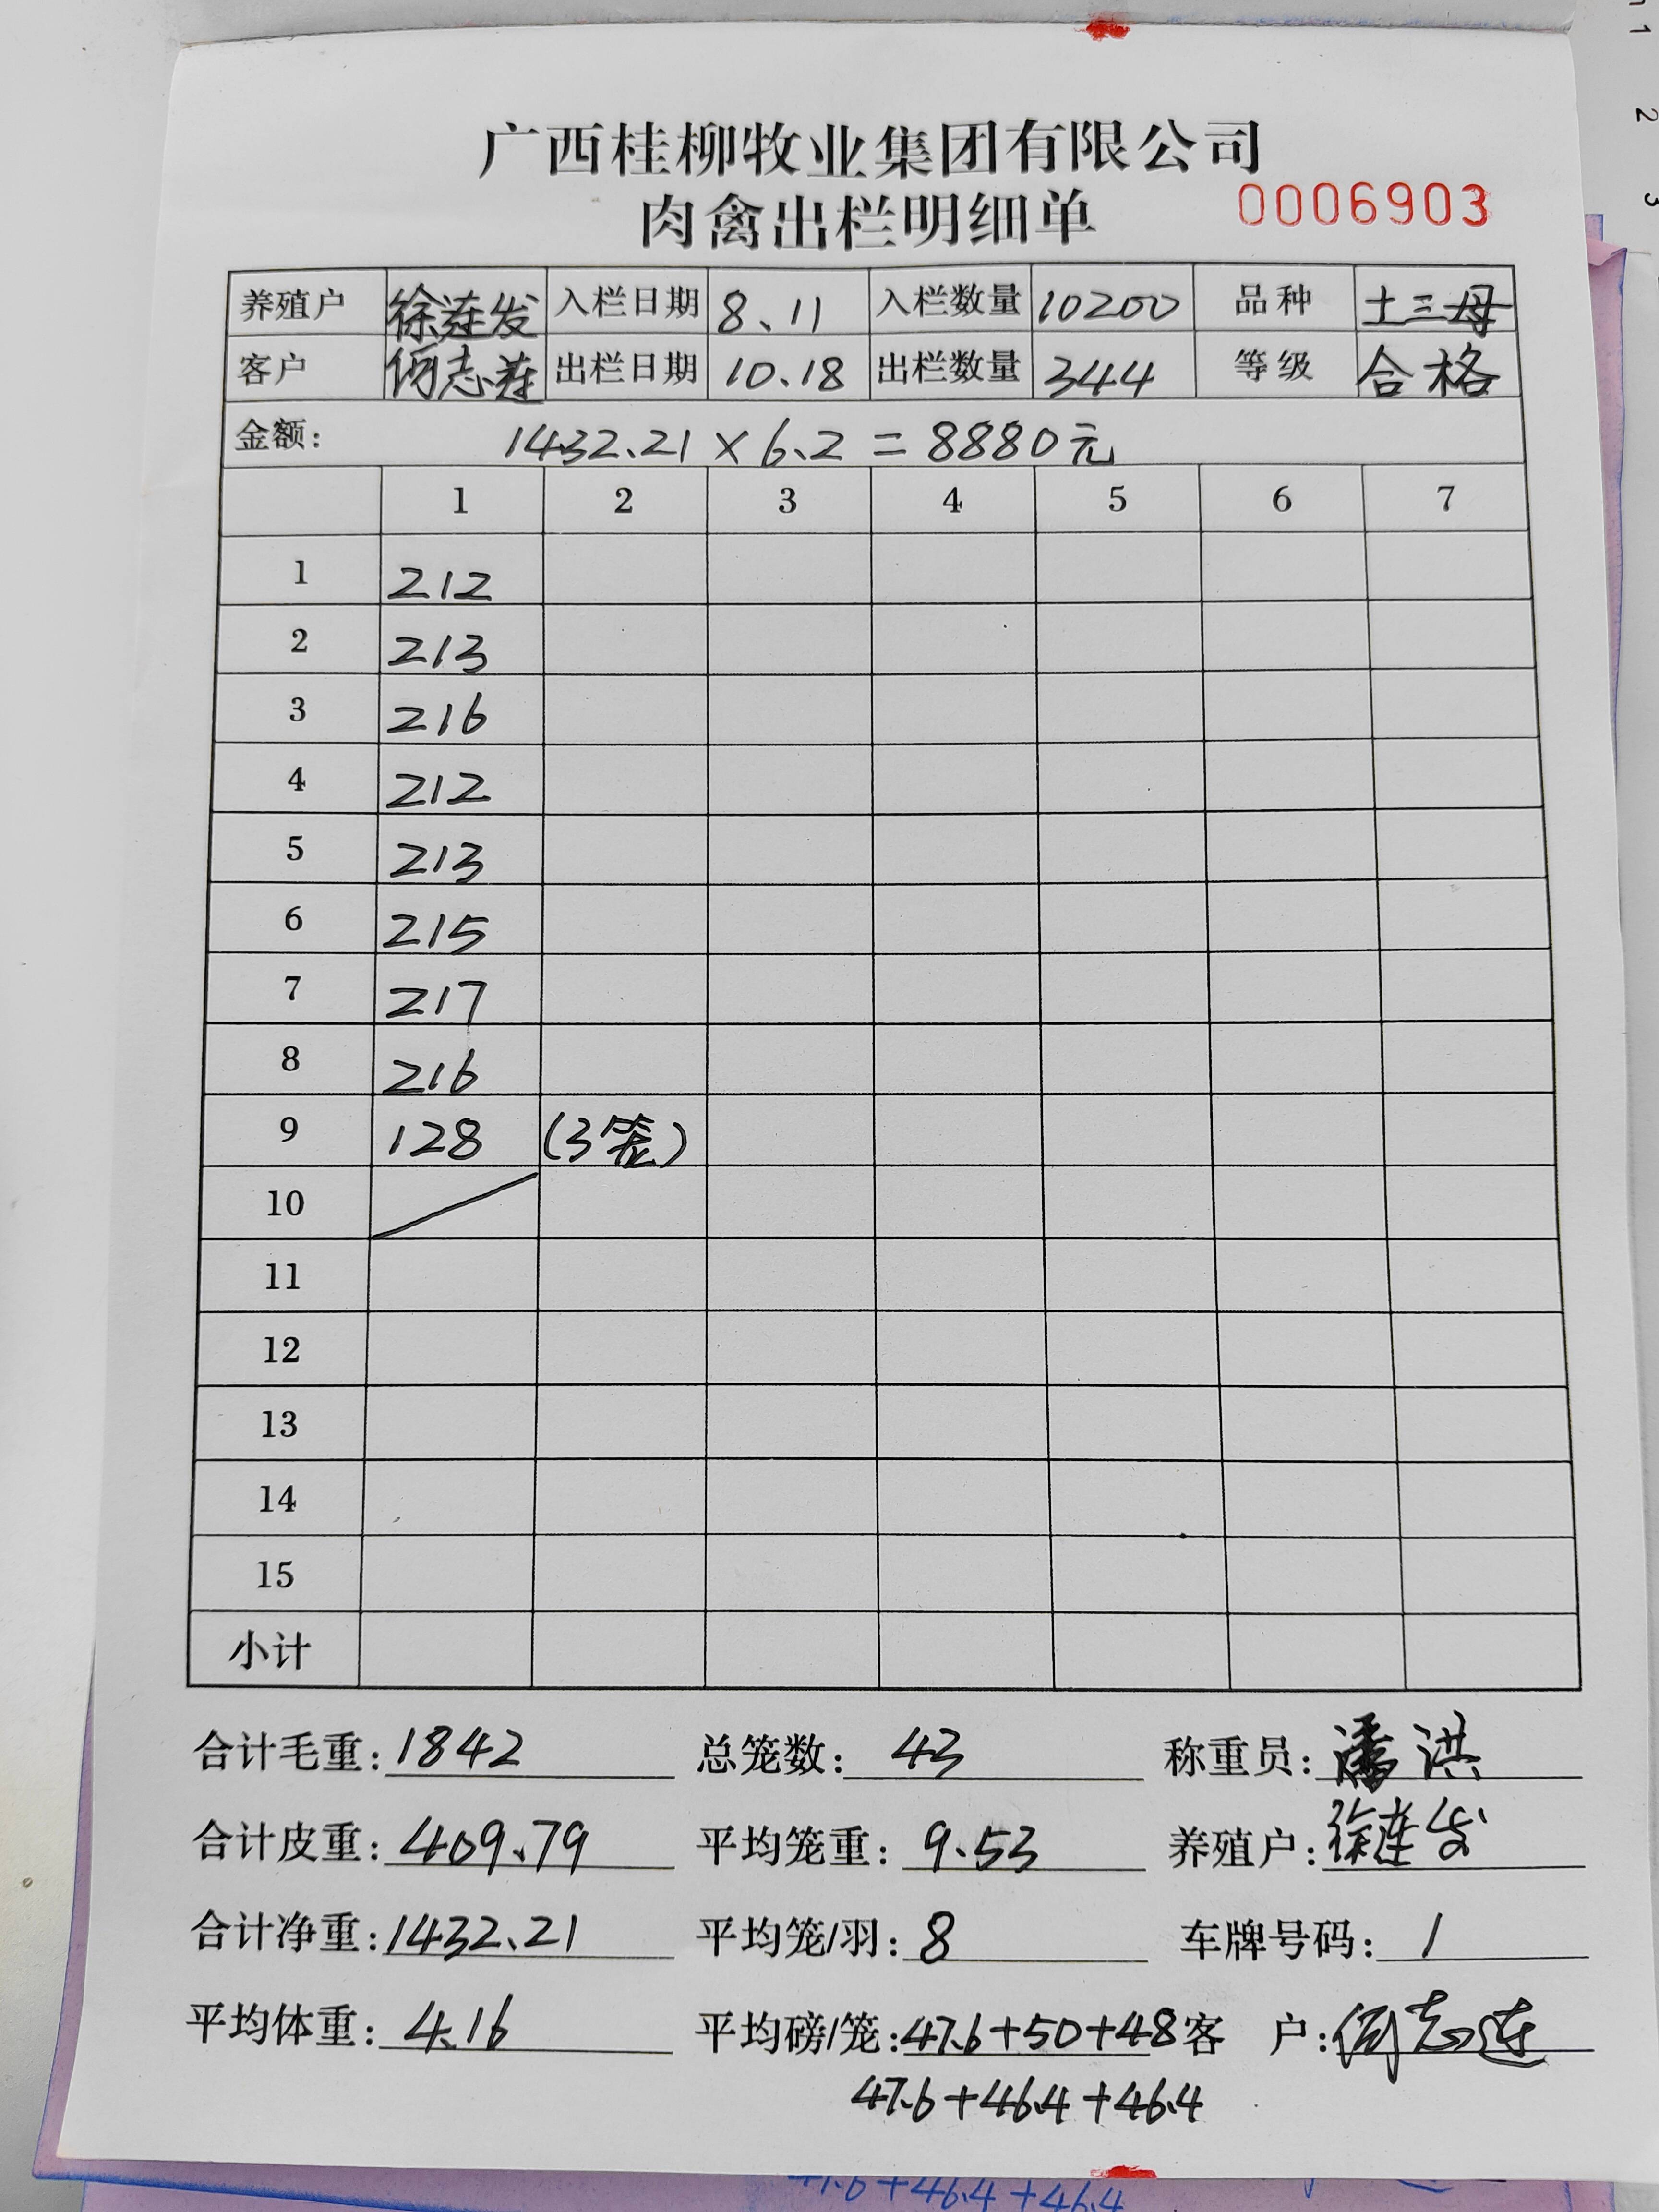 广西桂柳牧业集团有限公司
肉禽出栏明细单 0006903
养殖户 徐莲发 入栏日期 8、11 入栏数量 10200 品种 土三母
客户 何志莲 出栏日期 10.18 出栏数量 344 等级 合格
金额: 1432.21 × 6.2 = 8880元
1 2 3 4 5 6 7
1 212
2 213
3 216
4 212
5 213
6 215
7 217
8 216
9 128 (3笼)
10
11
12
13
14
15
小计
合计毛重: 1842 总笼数: 43 称重员: 潘洪
合计皮重: 409.79 平均笼重: 9.53 养殖户: 徐莲发
合计净重: 1432.21 平均笼/羽: 8 车牌号码: 1
平均体重: 4.16 平均磅/笼: 47.6+50+48 客 户: 何志连
47.6+46.4+46.4
47.6+46.4+46.4
1
2
3